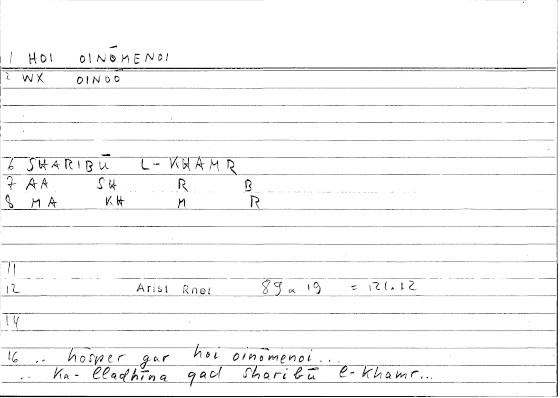 1 HOI OINŌMENOI
2 WX OINOO
6 SHARIBŪ L-KHAMR
7 AA SH R B
8 MA KH M R
11
12 Arist Rhet 89a19 = 121.12
14
16 .. hōsper gar hoi oinōmenoi...
.. ka-lladhīna qad sharibū l-khamr...